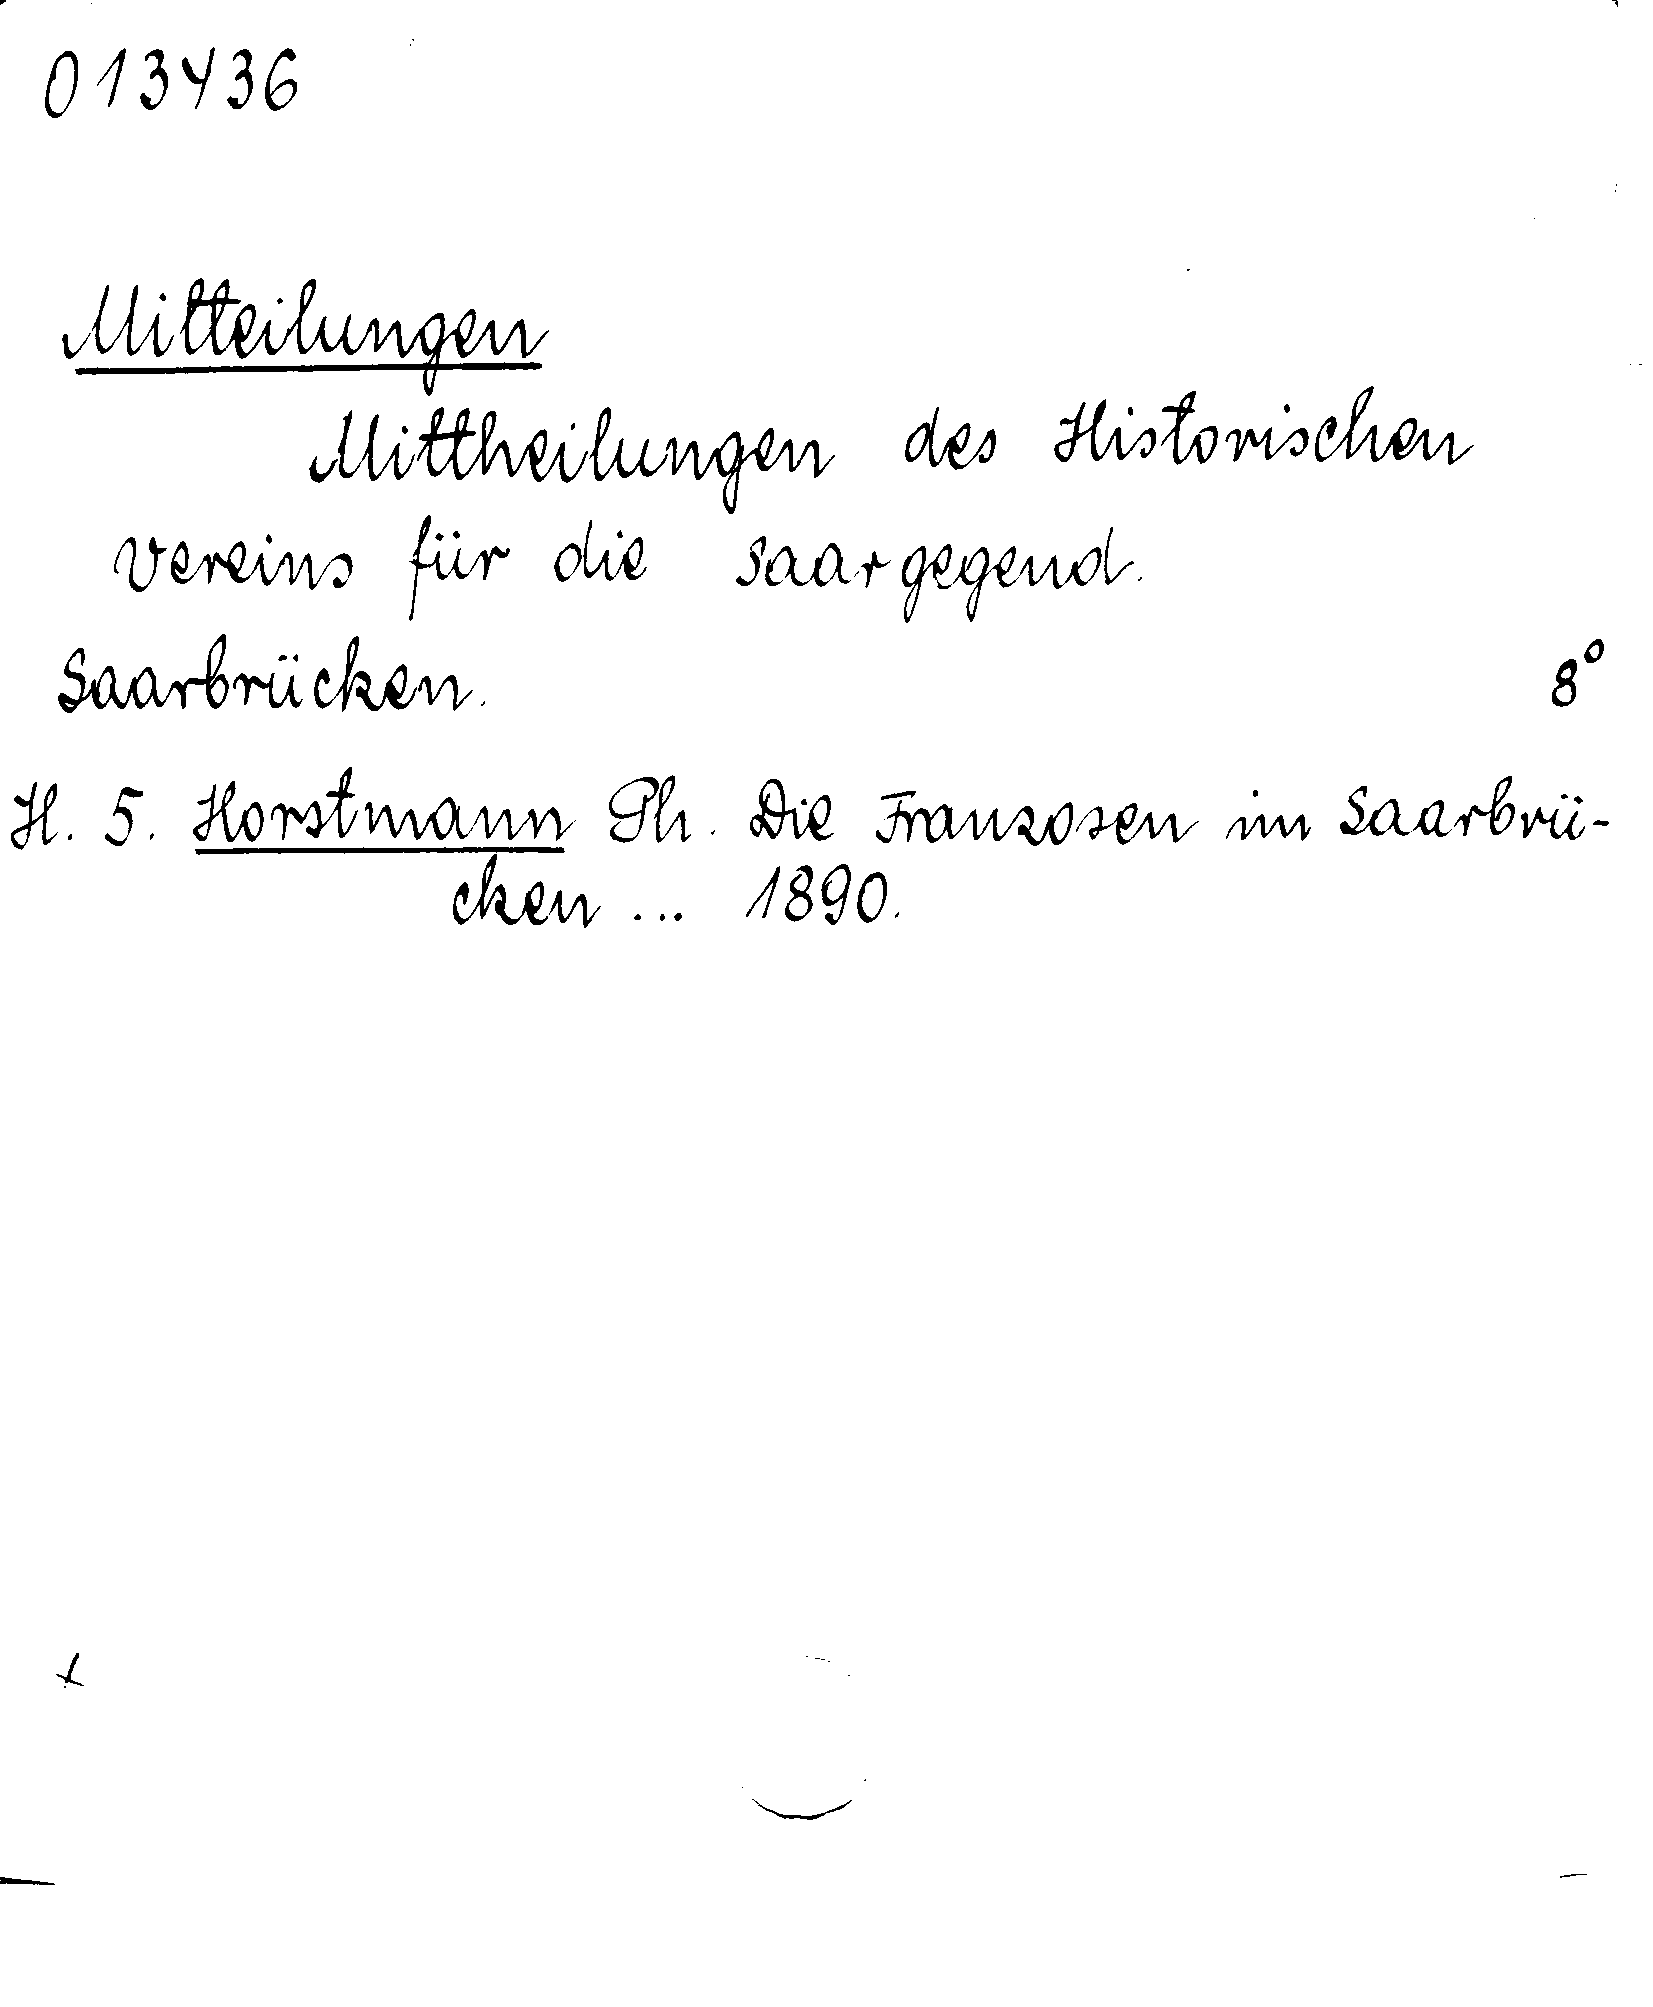 013436
Mitteilungen
Mittheilungen des Historischen
Vereins für die Saargegend.
Saarbrücken. 8°
H. 5. Horstmann Ph. Die Franzosen in Saarbrü-
cken ... 1890.